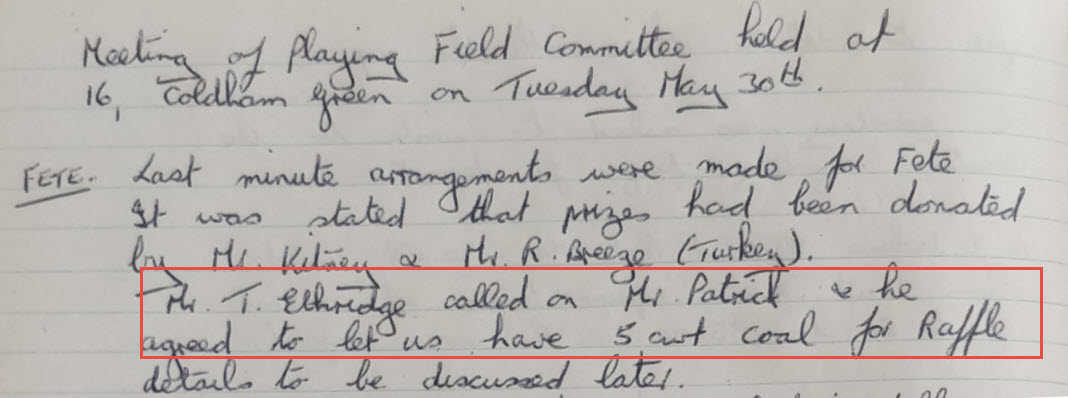 Meeting of Playing Field Committee held at
16, Coldham Green on Tuesday May 30th.
FETE. Last minute arrangements were made for Fete
It was stated that prizes had been donated
by Mr. Kitney & Mr. R. Breeze (Turkey).
Mr. T. Ethridge called on Mr. Patrick & he
agreed to let us have 5 cwt coal for Raffle
details to be discussed later.